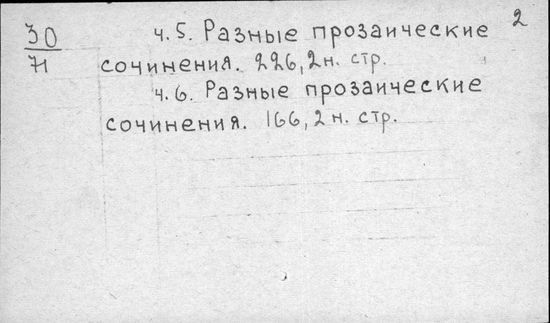 2
30 ч. 5. Разные прозаические
71 сочинения. 226, 2 н. стр.
ч. 6. Разные прозаические
сочинения. 166, 2 н. стр.